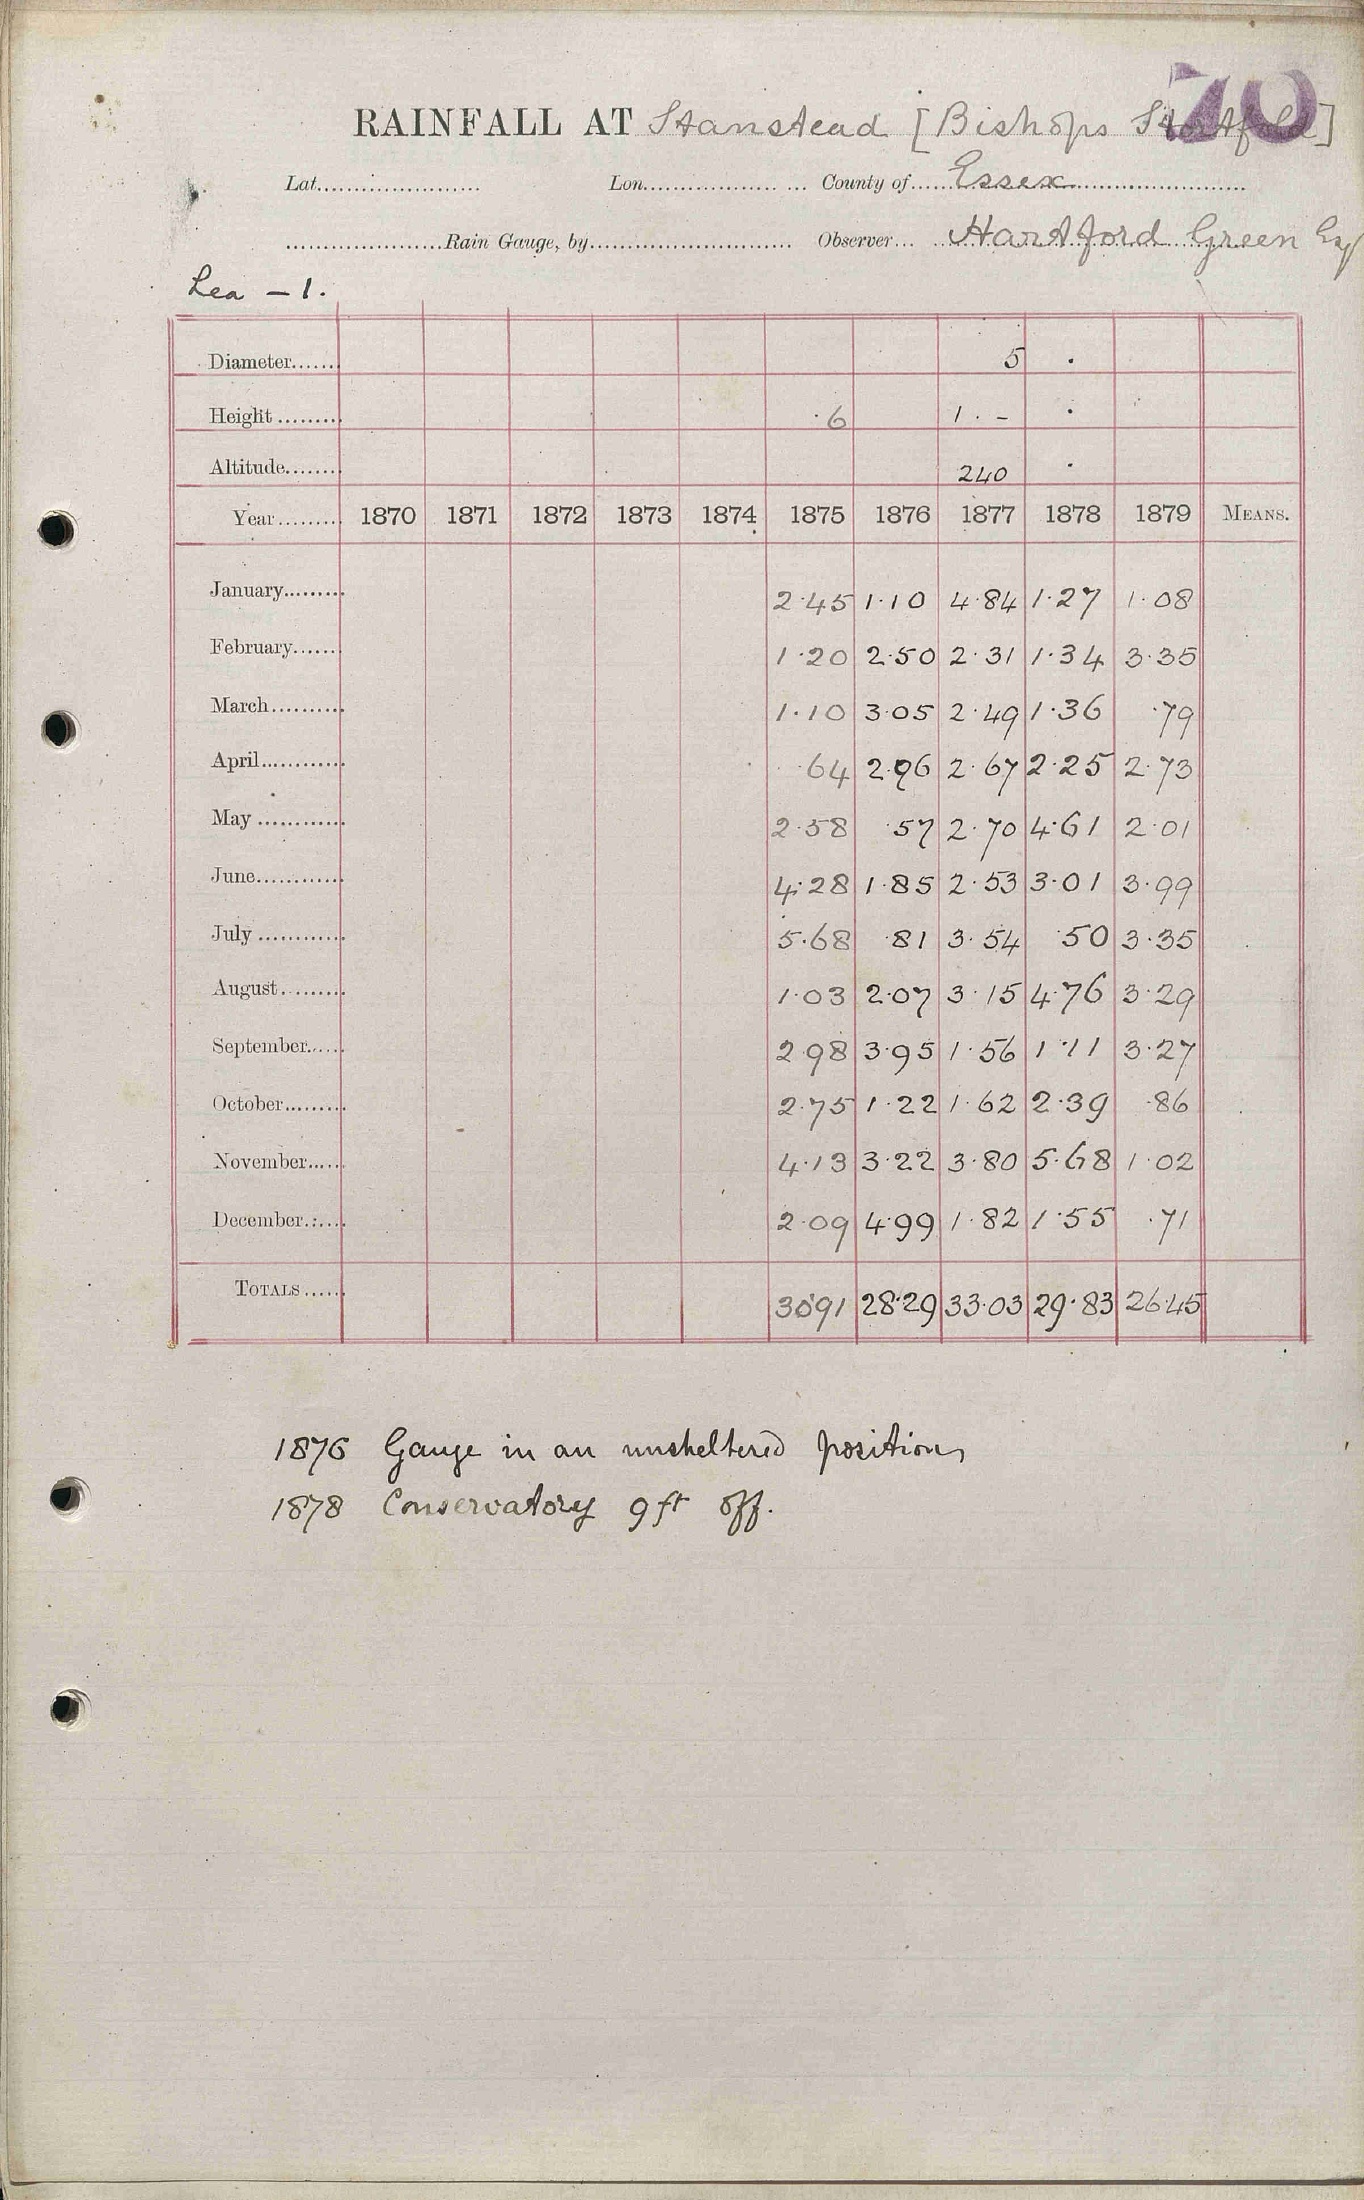 70
RAINFALL AT Stanstead [Bishops Stortford]
Lat. Lon. County of Essex
Rain Gauge, by Observer Hartford Green Esq
Lea - 1.
Diameter 5 .
Height ·6 1 · - .
Altitude 240 .
Year 1870 1871 1872 1873 1874 1875 1876 1877 1878 1879 MEANS.
January 2·45 1·10 4·84 1·27 1·08
February 1·20 2·50 2·31 1·34 3·35
March 1·10 3·05 2·49 1·36 ·79
April ·64 2·96 2·67 2·25 2·73
May 2·58 ·57 2·70 4·61 2·01
June 4·28 1·85 2·53 3·01 3·99
July 5·68 ·81 3·54 ·50 3·35
August 1·03 2·07 3·15 4·76 3·29
September 2·98 3·95 1·56 1·11 3·27
October 2·75 1·22 1·62 2·39 ·86
November 4·13 3·22 3·80 5·68 1·02
December 2·09 4·99 1·82 1·55 ·71
TOTALS 30·91 28·29 33·03 29·83 26·45
1876 Gauge in an unsheltered position
1878 Conservatory 9 ft off.